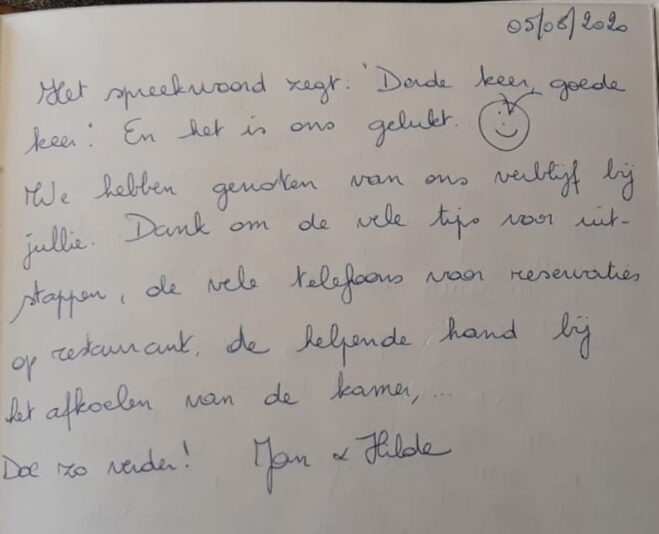 05/08/2020
Het spreekwoord zegt: "Derde keer, goede
keer." En het is ons gelukt.
We hebben genoten van ons verblijf bij
jullie. Dank om de vele tips voor uit-
stappen, de vele telefoons voor reservaties
op restaurant, de helpende hand bij
het afkoelen van de kamer, ...
Doe zo verder! Jan & Hilde